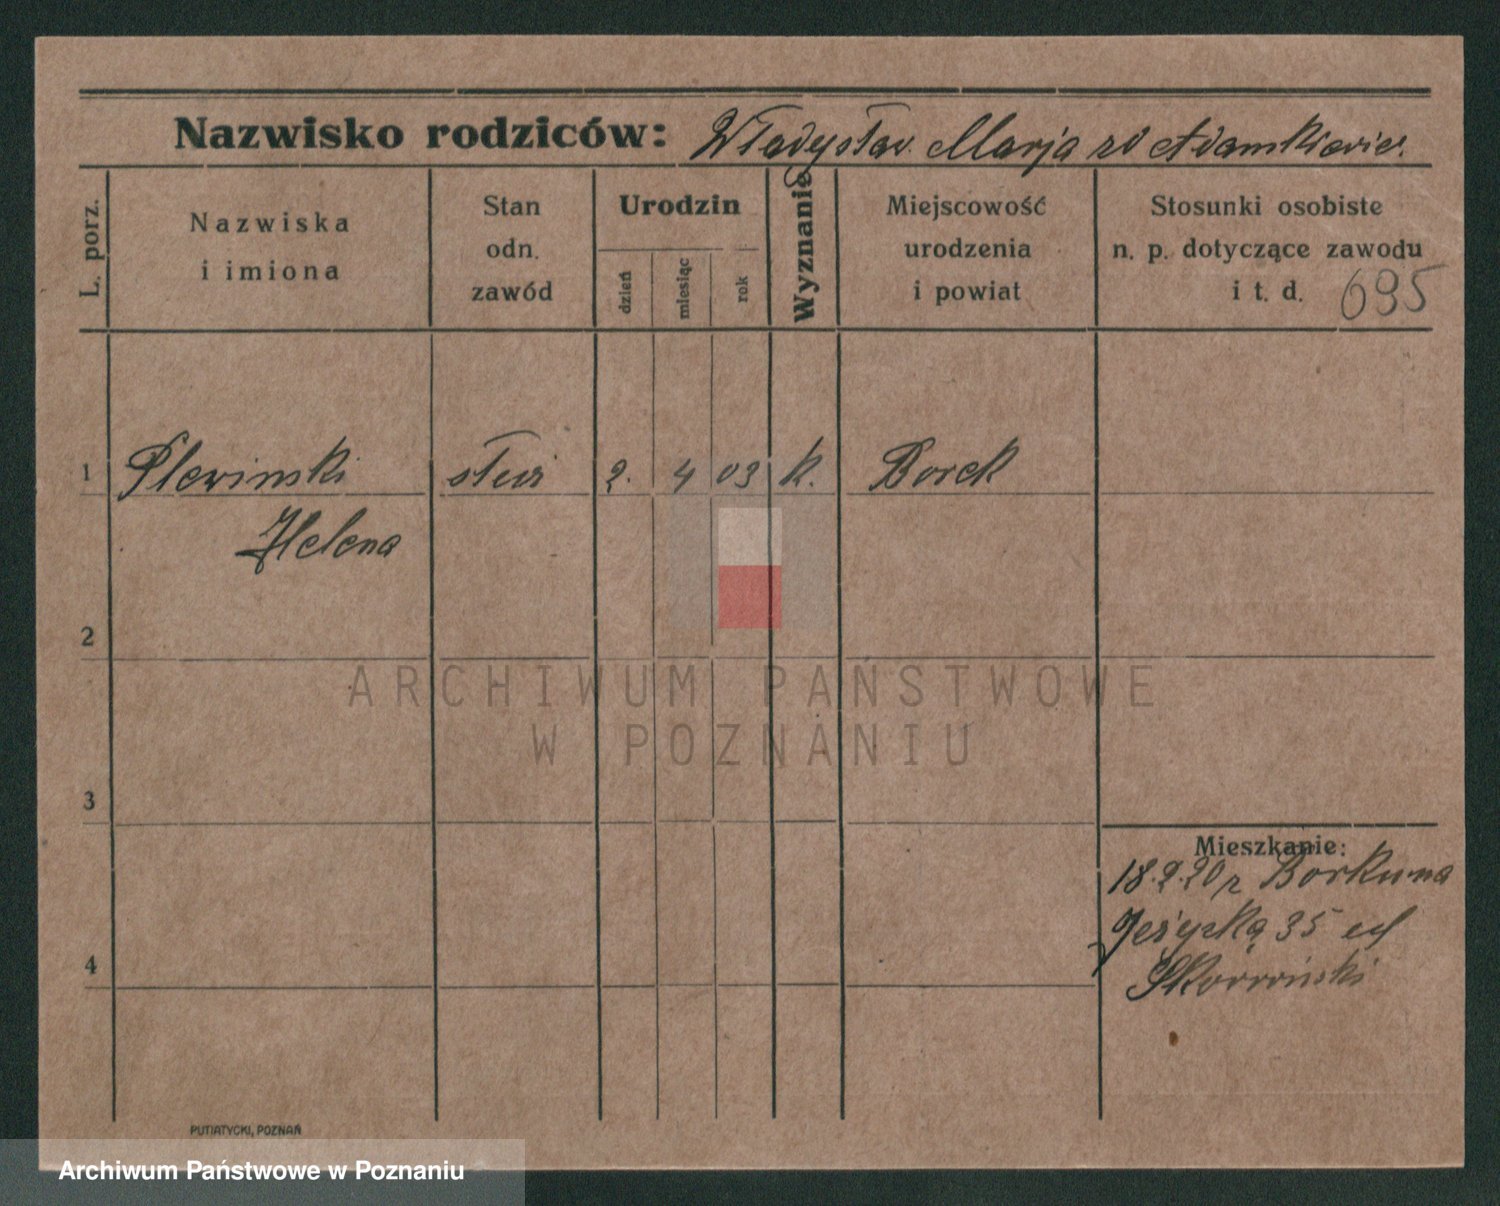 Nazwisko rodziców: Władysław Marja zd Adamkiewicz.
L. porz.
Nazwiska
i imiona
Stan
odn.
zawód
Urodzin
dzień
miesiąc
rok
Wyznanie
Miejscowość
urodzenia
i powiat
Stosunki osobiste
n. p. dotyczące zawodu
i t. d. 695
1 Plewinski 2. 4 03 k. Borek
Helena
2
3
4
Mieszkanie:
18.2.20 z Borku na
35
PUTIATYCKI, POZNAŃ
ARCHIWUM PAŃSTWOWE
W POZNANIU
Archiwum Państwowe w Poznaniu